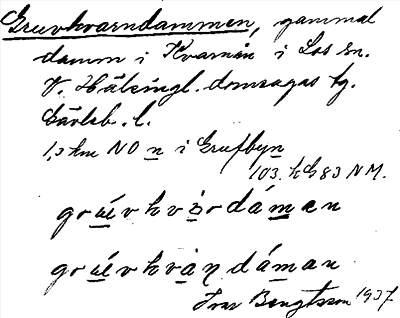 Gruvkvarndammen, gammal
damm i Kvarnån i Los sn.
V. Hälsingl. domsagas tg.
Gävleb. l.
1,3 km NO n i Grufbyn
103. h G 83 NM.
gruévkvàrdáman
gruévkvàṇdáman
Ivar Bengtsson 1937